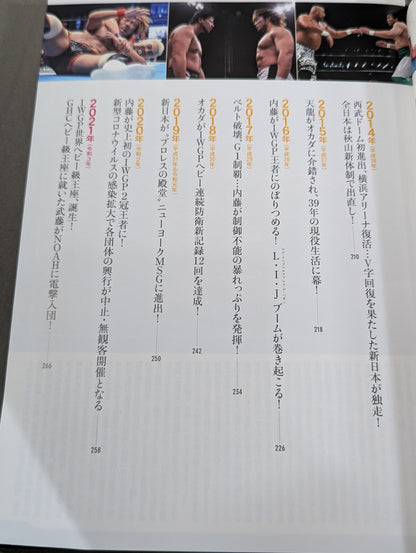 2014年(平成26年)
西武ドーム初進出、横浜アリーナ復活…V字回復を果たした新日本が独走!
全日本は秋山新体制で出直し! 210
2015年(平成27年)
天龍がオカダに介錯され、39年の現役生活に幕! 218
2016年(平成28年)
内藤がIWGP王座にのぼりつめる! L・I・Jブームが巻き起こる! 226
2017年(平成29年)
ベルト破壊、G1制覇…内藤が制御不能の暴れっぷりを発揮! 234
2018年(平成30年)
オカダがIWGPヘビー連続防衛新記録12回を達成! 242
2019年(平成31年&令和元年)
新日本が、“プロレスの殿堂”ニューヨークMSGに進出! 250
2020年(令和2年)
内藤が史上初のIWGP2冠王者に!
新型コロナウイルスの感染拡大で各団体の興行が中止・無観客開催となる 258
2021年(令和3年)
IWGP世界ヘビー級王座、誕生!
GHCヘビー級王座に就いた武藤がNOAHに電撃入団! 266